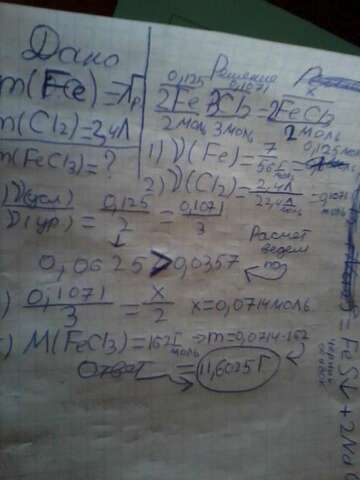 Дано
m(Fe)=7г
m(Cl2)=2,4л
m(FeCl3)=?
Решение
0,125 0,1071 x
2Fe+3Cl2=2FeCl3
2моль 3моль 2моль
1) ν(Fe)=7/56г/моль=0,125моль
2) ν(Cl2)=2,4л/22,4л/моль=0,1071моль
) ν(усл)/ν(ур) = 0,125/2 = 0,1071/3
0,0625>0,0357
Расчет ведем по
) 0,1071/3 = x/2 x=0,0714моль
) M(FeCl3)=162г/моль ⇒ m=0,0714·162
Ответ =11,6025г
=FeS↓+2Na
черный осадок